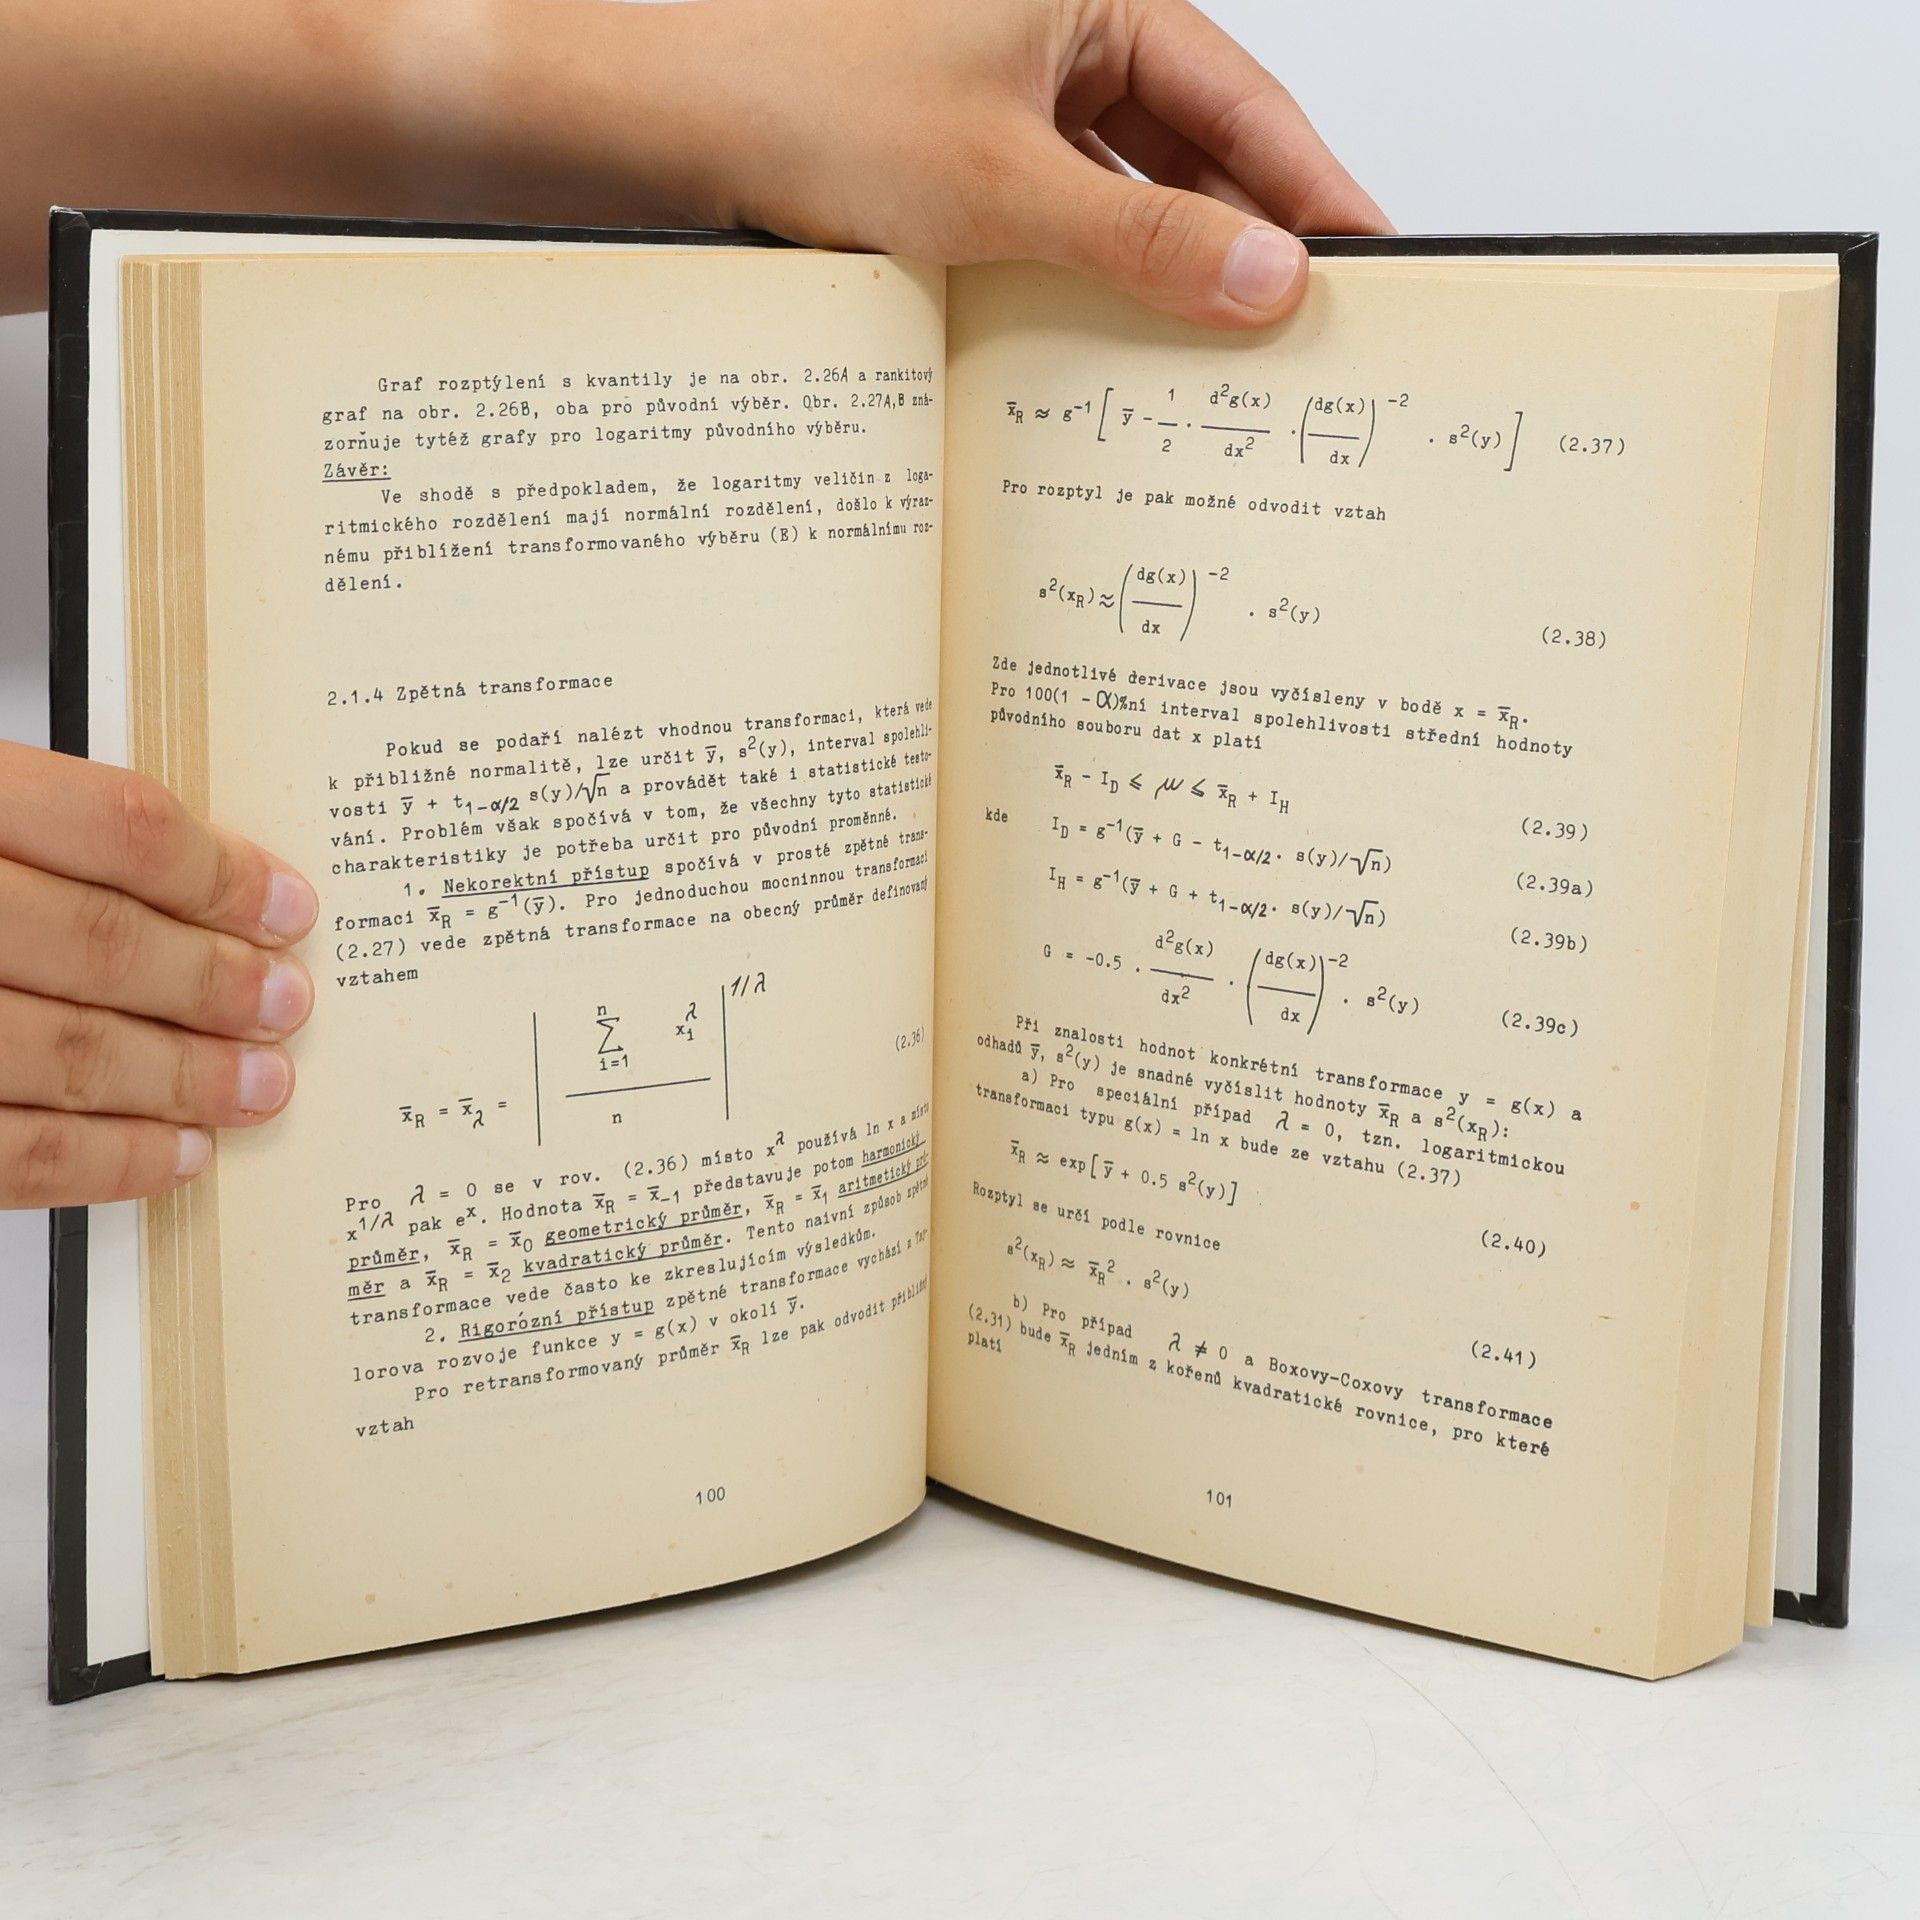 Graf rozptýlení s kvantily je na obr. 2.26A a rankitový
graf na obr. 2.26B, oba pro původní výběr. Obr. 2.27A,B zná-
zorňuje tytéž grafy pro logaritmy původního výběru.
Závěr:
Ve shodě s předpokladem, že logaritmy veličin z loga-
ritmického rozdělení mají normální rozdělení, došlo k výraz-
nému přiblížení transformovaného výběru (E) k normálnímu roz-
dělení.
2.1.4 Zpětná transformace
Pokud se podaří nalézt vhodnou transformaci, která vede
k přibližné normalitě, lze určit ȳ, s²(y), interval spolehli-
vosti ȳ + t₁₋α/₂ s(y)/√n a provádět také i statistické testo-
vání. Problém však spočívá v tom, že všechny tyto statistické
charakteristiky je potřeba určit pro původní proměnné.
1. Nekorektní přístup spočívá v prosté zpětné trans-
formaci x̄R = g⁻¹(ȳ). Pro jednoduchou mocninnou transformaci
(2.27) vede zpětná transformace na obecný průměr definovaný
vztahem
x̄R = x̄λ = | Σ i=1 n xᵢ^λ / n | 1/λ (2.36)
Pro λ = 0 se v rov. (2.36) místo x^λ používá ln x a místo
x^1/λ pak eˣ. Hodnota x̄R = x̄₋₁ představuje potom harmonický
průměr, x̄R = x̄₀ geometrický průměr, x̄R = x̄₁ aritmetický prů-
měr a x̄R = x̄₂ kvadratický průměr. Tento naivní způsob zpětné
transformace vede často ke zkreslujícím výsledkům.
2. Rigorózní přístup zpětné transformace vychází z Tay-
lorova rozvoje funkce y = g(x) v okolí ȳ.
Pro retransformovaný průměr x̄R lze pak odvodit přibližný
vztah
100
x̄R ≈ g⁻¹ [ ȳ - 1/2 . d²g(x)/dx² . (dg(x)/dx)⁻² . s²(y) ] (2.37)
Pro rozptyl je pak možné odvodit vztah
s²(xR) ≈ (dg(x)/dx)⁻² . s²(y) (2.38)
Zde jednotlivé derivace jsou vyčísleny v bodě x = x̄R.
Pro 100(1 - α)%ní interval spolehlivosti střední hodnoty
původního souboru dat x platí
x̄R - ID ≤ μ ≤ x̄R + IH (2.39)
kde ID = g⁻¹(ȳ + G - t₁₋α/₂. s(y)/√n) (2.39a)
IH = g⁻¹(ȳ + G + t₁₋α/₂. s(y)/√n) (2.39b)
G = -0.5 . d²g(x)/dx² . (dg(x)/dx)⁻² . s²(y) (2.39c)
Při znalosti hodnot konkrétní transformace y = g(x) a
odhadů ȳ, s²(y) je snadné vyčíslit hodnoty x̄R a s²(xR):
a) Pro speciální případ λ = 0, tzn. logaritmickou
transformaci typu g(x) = ln x bude ze vztahu (2.37)
x̄R ≈ exp[ ȳ + 0.5 s²(y)] (2.40)
Rozptyl se určí podle rovnice
s²(xR) ≈ x̄R² . s²(y) (2.41)
b) Pro případ λ ≠ 0 a Boxovy-Coxovy transformace
(2.31) bude x̄R jedním z kořenů kvadratické rovnice, pro které
platí
101